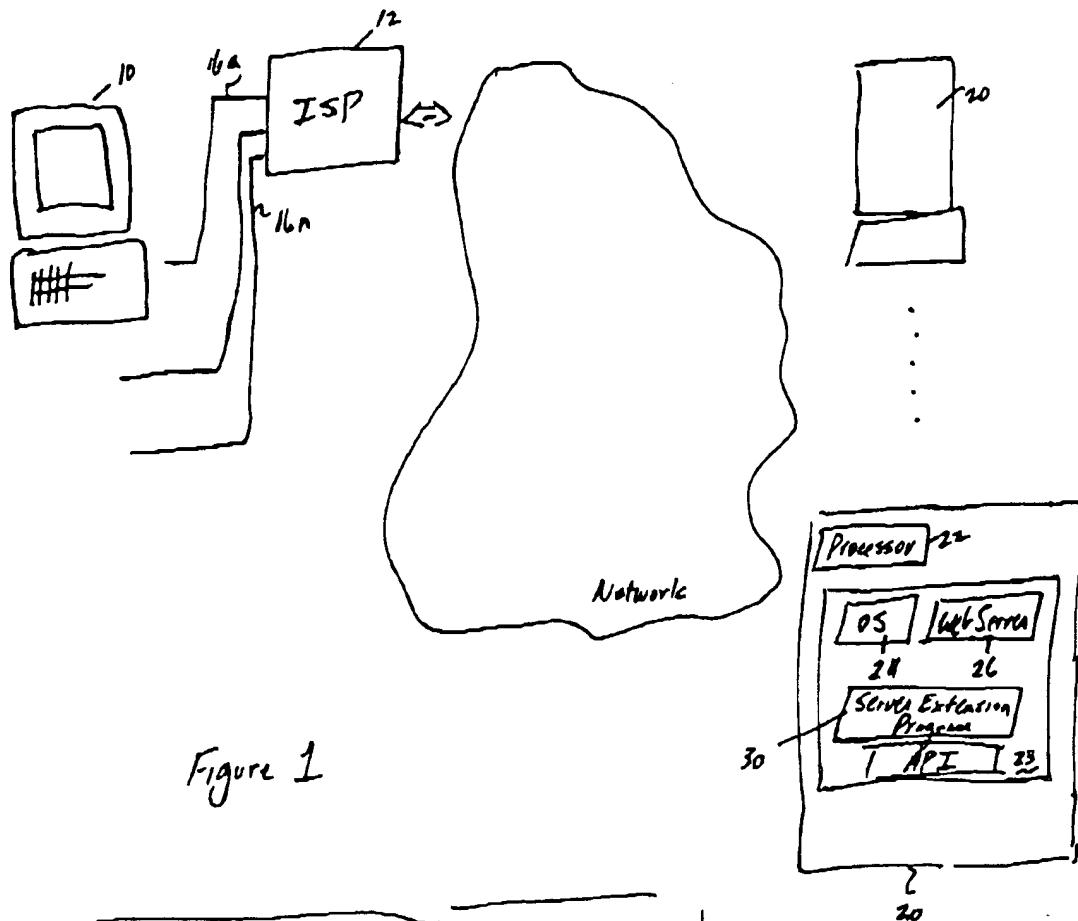 12
16a
10
ISP
20
16n
Network
Processor
22
OS
Web Server
24
26
Server Extension
Program
30
API
28
Figure 1
20